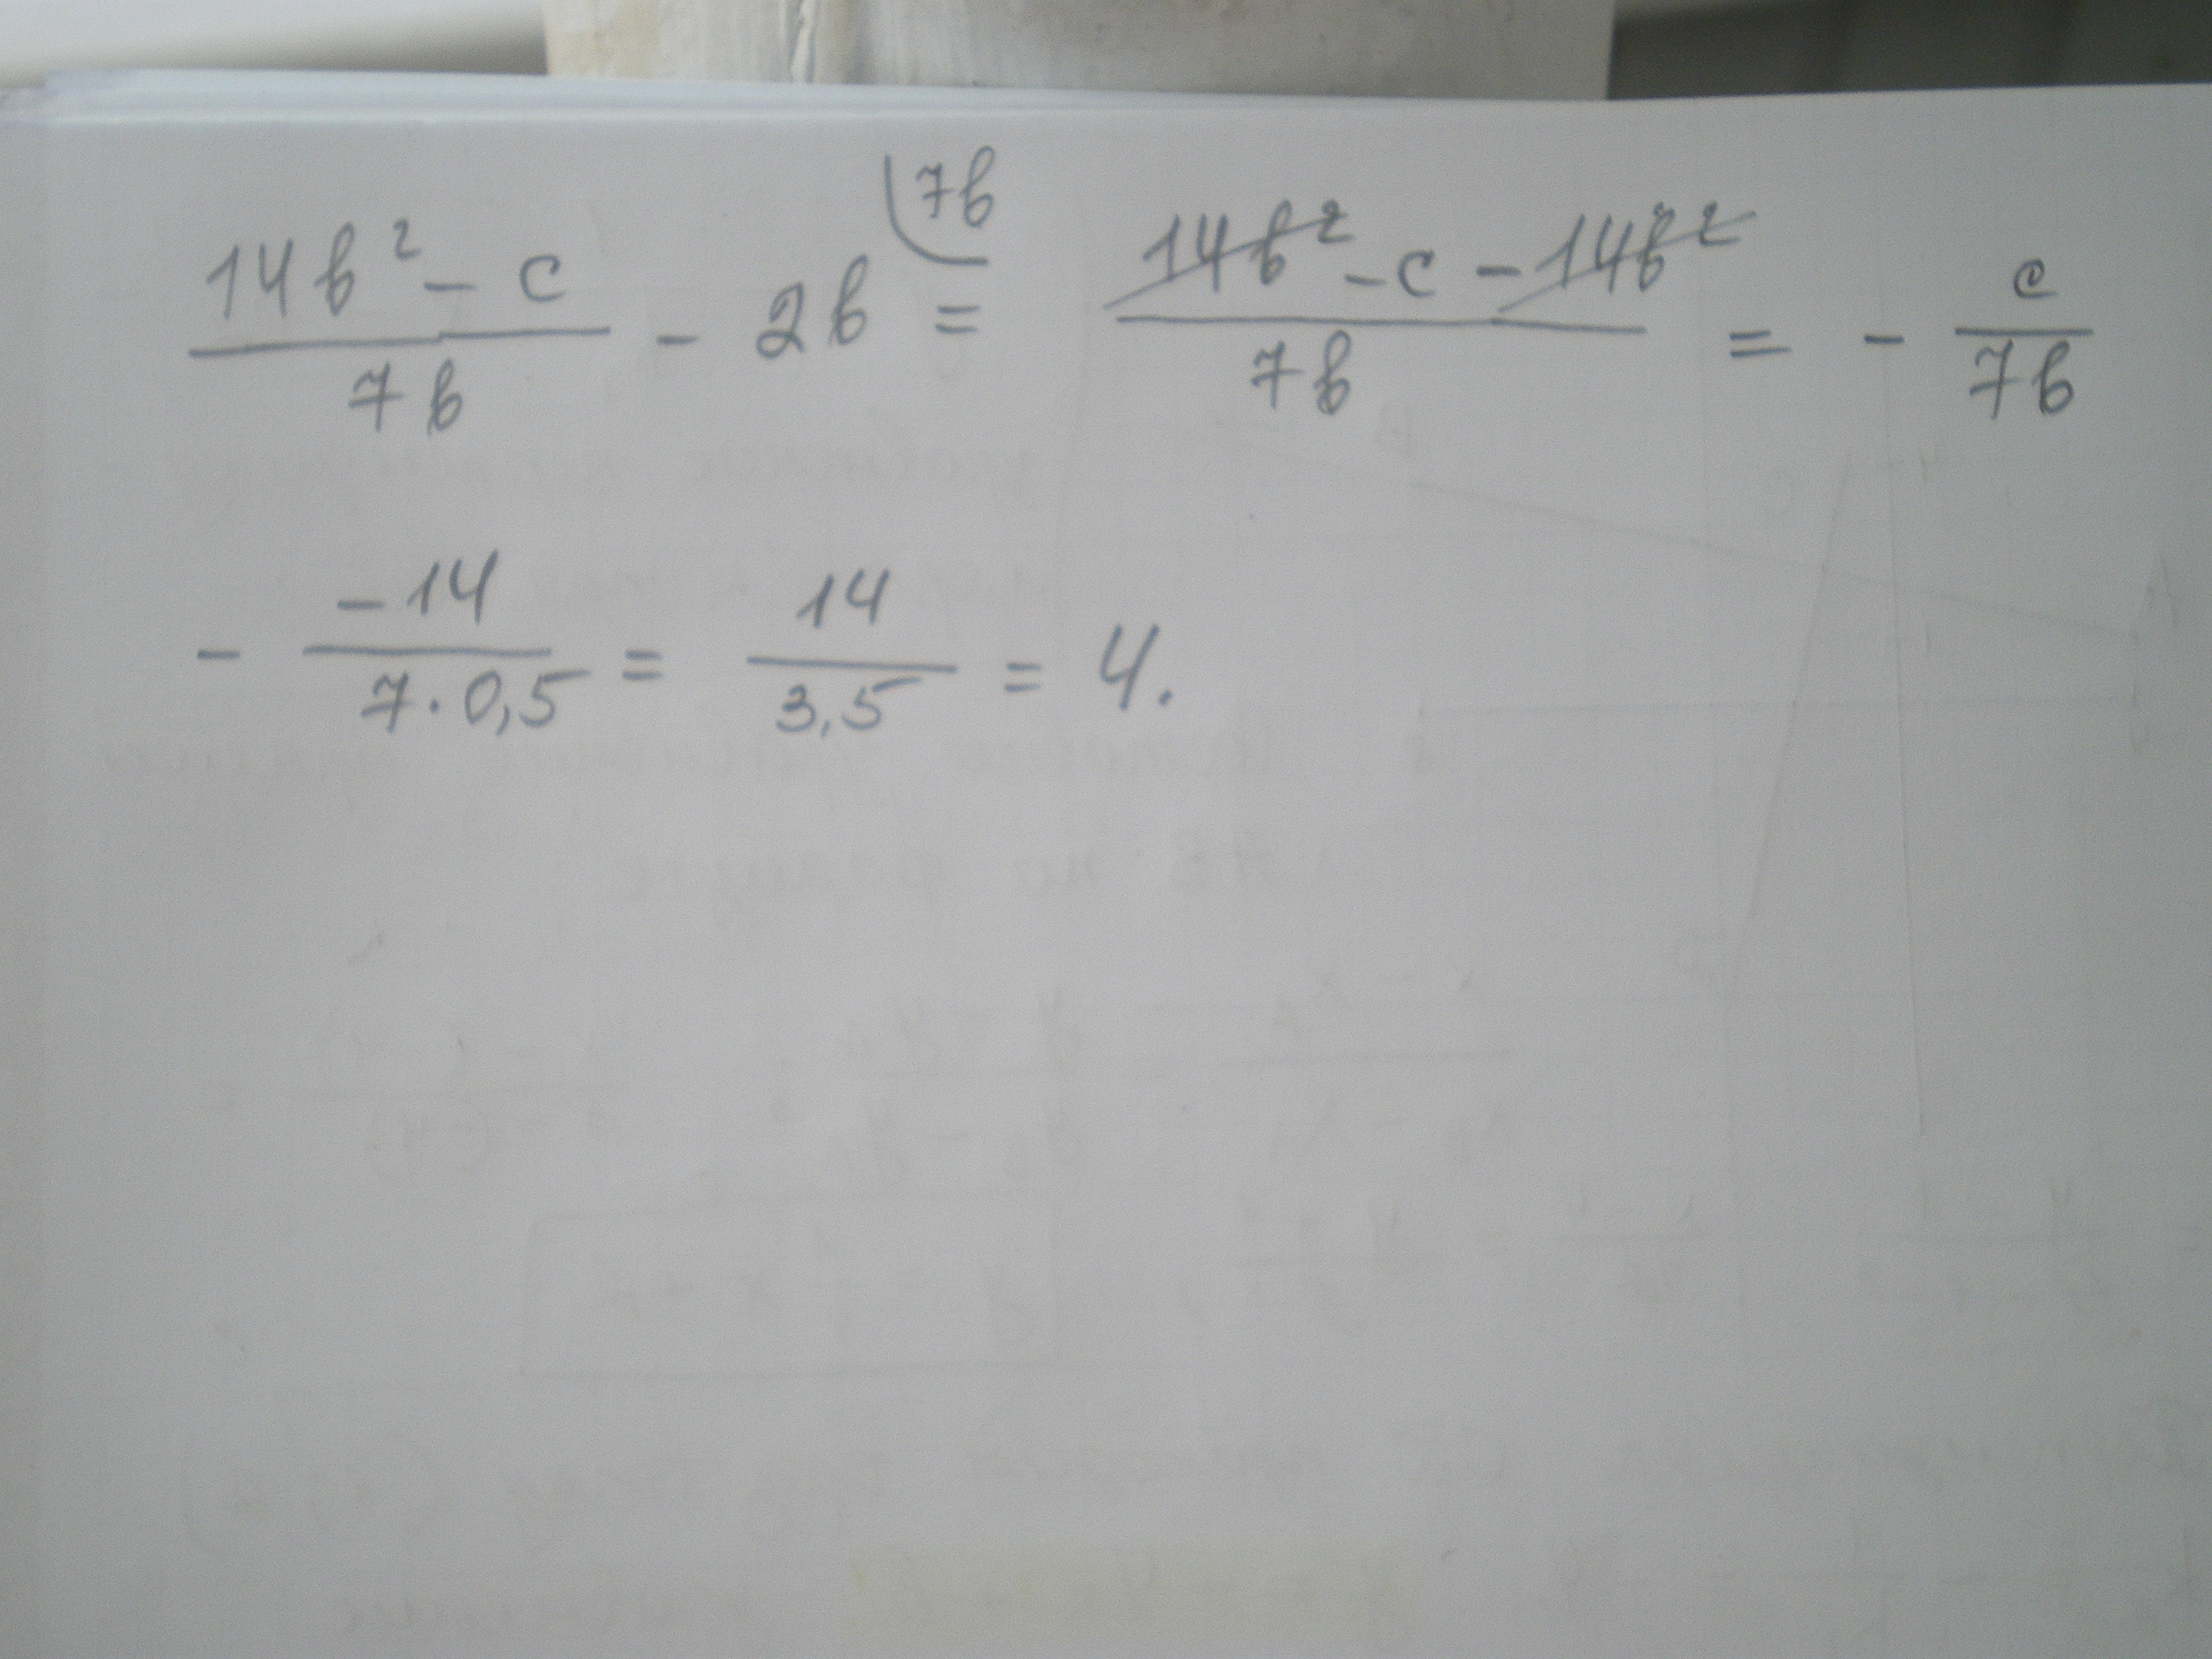 (14b² - c)/(7b) - 2b ⌊7b = (14b² - c - 14b²)/(7b) = - c/(7b)
- (-14)/(7·0,5) = 14/(3,5) = 4.